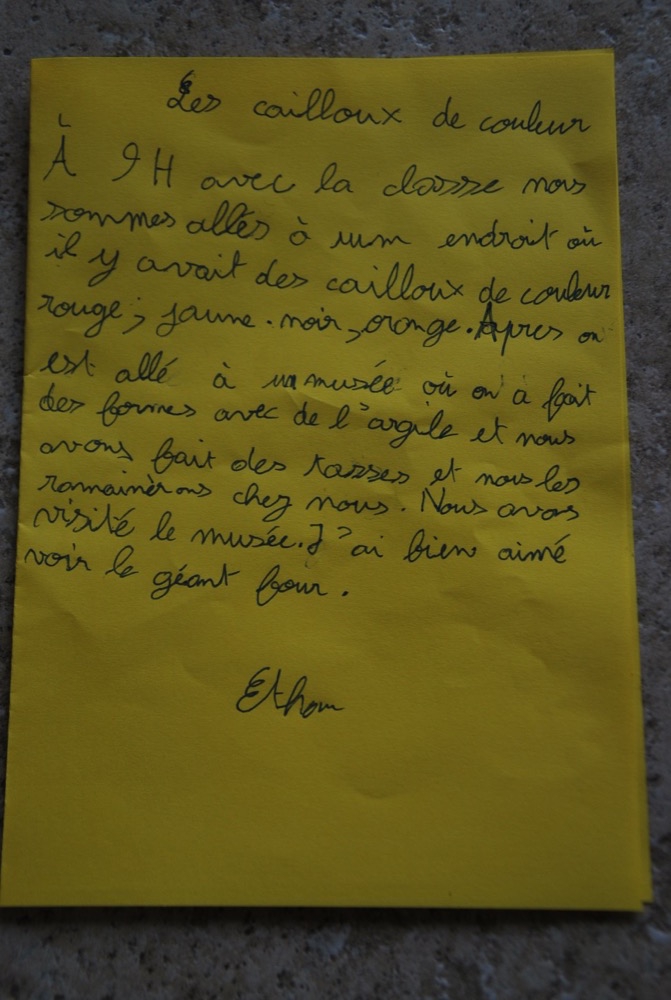 Les cailloux de couleur
À 9H avec la classe nous
sommes allés à un endroit où
il y avait des cailloux de couleur
rouge, jaune. noir, orange. Apres on
est allé à un musée où on a fait
des formes avec de l'argile et nous
avons fait des tasses et nous les
ramainèrons chez nous. Nous avons
visité le musée. J'ai bien aimé
voir le géant four.
Ethan